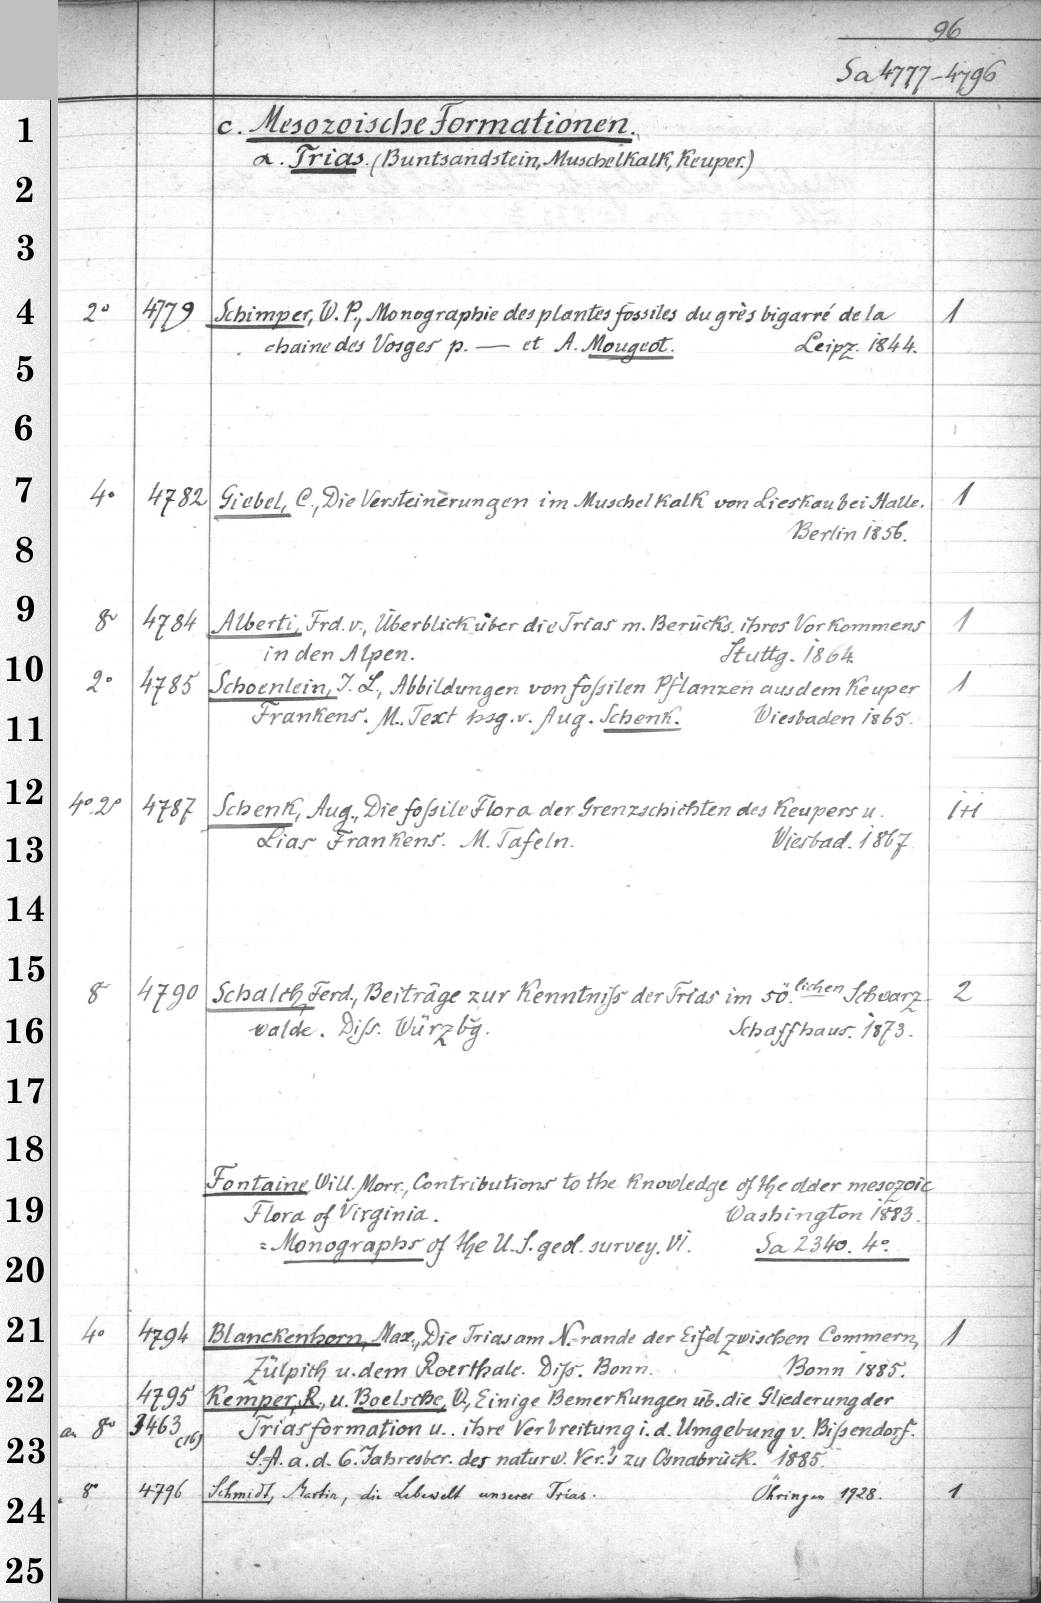 96
Sa 4777-4796
1 c. Mesozoische Formationen.
2 α. Trias. (Buntsandstein, Muschelkalk, Keuper.)
3
4 2° 4779 Schimper, W. P., Monographie des plantes fossiles du grès bigarré de la 1
5 chaine des Vosges p. — et A. Mougeot. Leipz. 1844.
6
7 4° 4782 Giebel, C., Die Versteinerungen im Muschelkalk von Lieskau bei Halle. 1
8 Berlin 1856.
9 8° 4784 Alberti, Frd. v., Überblick über die Trias m. Berücks. ihres Vorkommens 1
10 in den Alpen. Stuttg. 1864.
2° 4785 Schoenlein, J. L., Abbildungen von foßilen Pflanzen aus dem Keuper 1
11 Frankens. M. Text hsg. v. Aug. Schenk. Wiesbaden 1865.
12 4°.2° 4787 Schenk, Aug., Die foßile Flora der Grenzschichten des Keupers u. 1+1
13 Lias Frankens. M. Tafeln. Wiesbad. 1867
14
15 8° 4790 Schalch, Ferd., Beiträge zur Kenntniß der Trias im sö.lichen Schwarz- 2
16 walde. Diß. Würzbg. Schaffhaus. 1873.
17
18
Fontaine, Will. Morr., Contributions to the knowledge of the older mesozoic
19 Flora of Virginia. Washington 1883.
20 = Monographs of the U. S. geol. survey. VI. Sa 2340. 4°.
21 4° 4794 Blanckenhorn, Max., Die Trias am N.-rande der Eifel zwischen Commern, 1
Zülpich u. dem Roerthale. Diß. Bonn. Bonn 1885.
22 4795 Kemper, R., u. Boelsche, W., Einige Bemerkungen üb. die Gliederung der
an 8° 3463 (16) Triasformation u. ihre Verbreitung i. d. Umgebung v. Bißendorf.
23 S. A. a. d. 6. Jahresber. des naturw. Ver.'s zu Osnabrück. 1885.
24 8° 4796 Schmidt, Martin, die Lebewelt unserer Trias. Öhringen 1928. 1
25